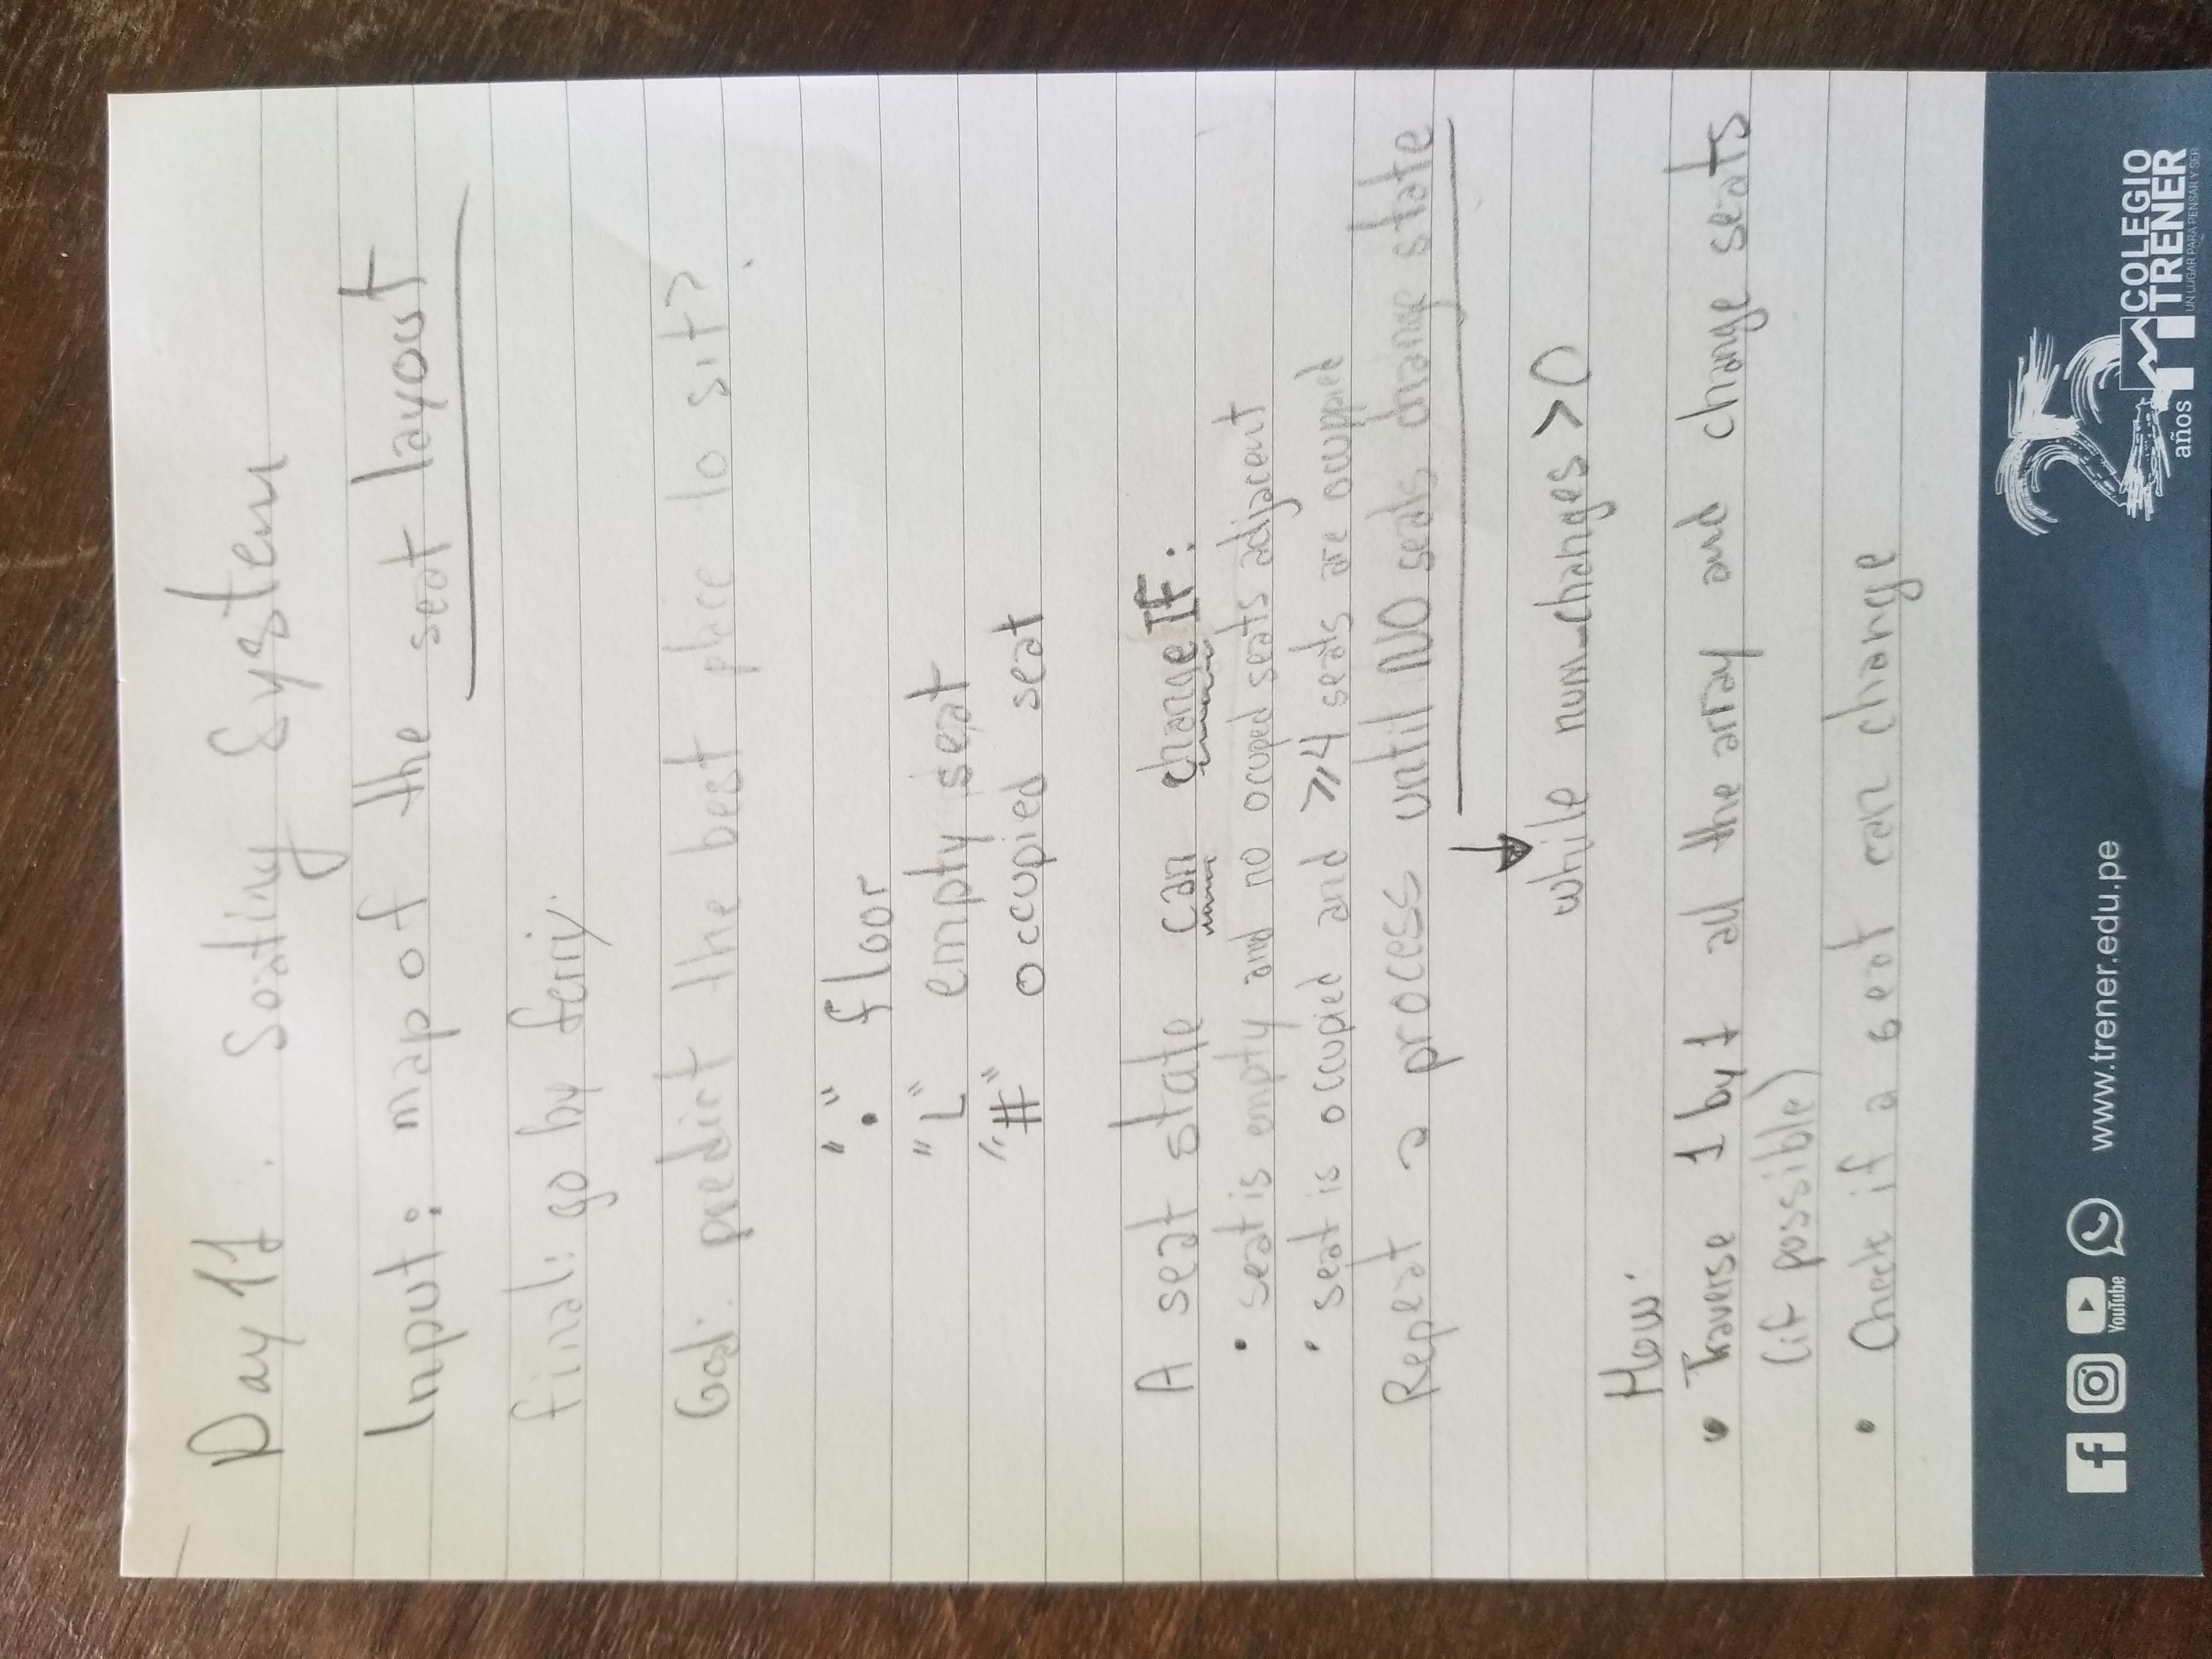 Day 11. Seating System
Input: map of the seat layout
final: go by ferry.
Goal: predict the best place to sit?
"." floor
"L" empty seat
"#" occupied seat
A seat state can change IF:
• seat is empty and no ocuped seats adjacent
• seat is occupied and ≥4 seats are ocuppied
Repeat a process until NO seats change state
↓
while num_changes > 0
How:
• Traverse 1 by 1 all the array and change seats
(if possible)
• Check if a seat can change
YouTube
www.trener.edu.pe
25
años
COLEGIO
TRENER
UN LUGAR PARA PENSAR Y SER